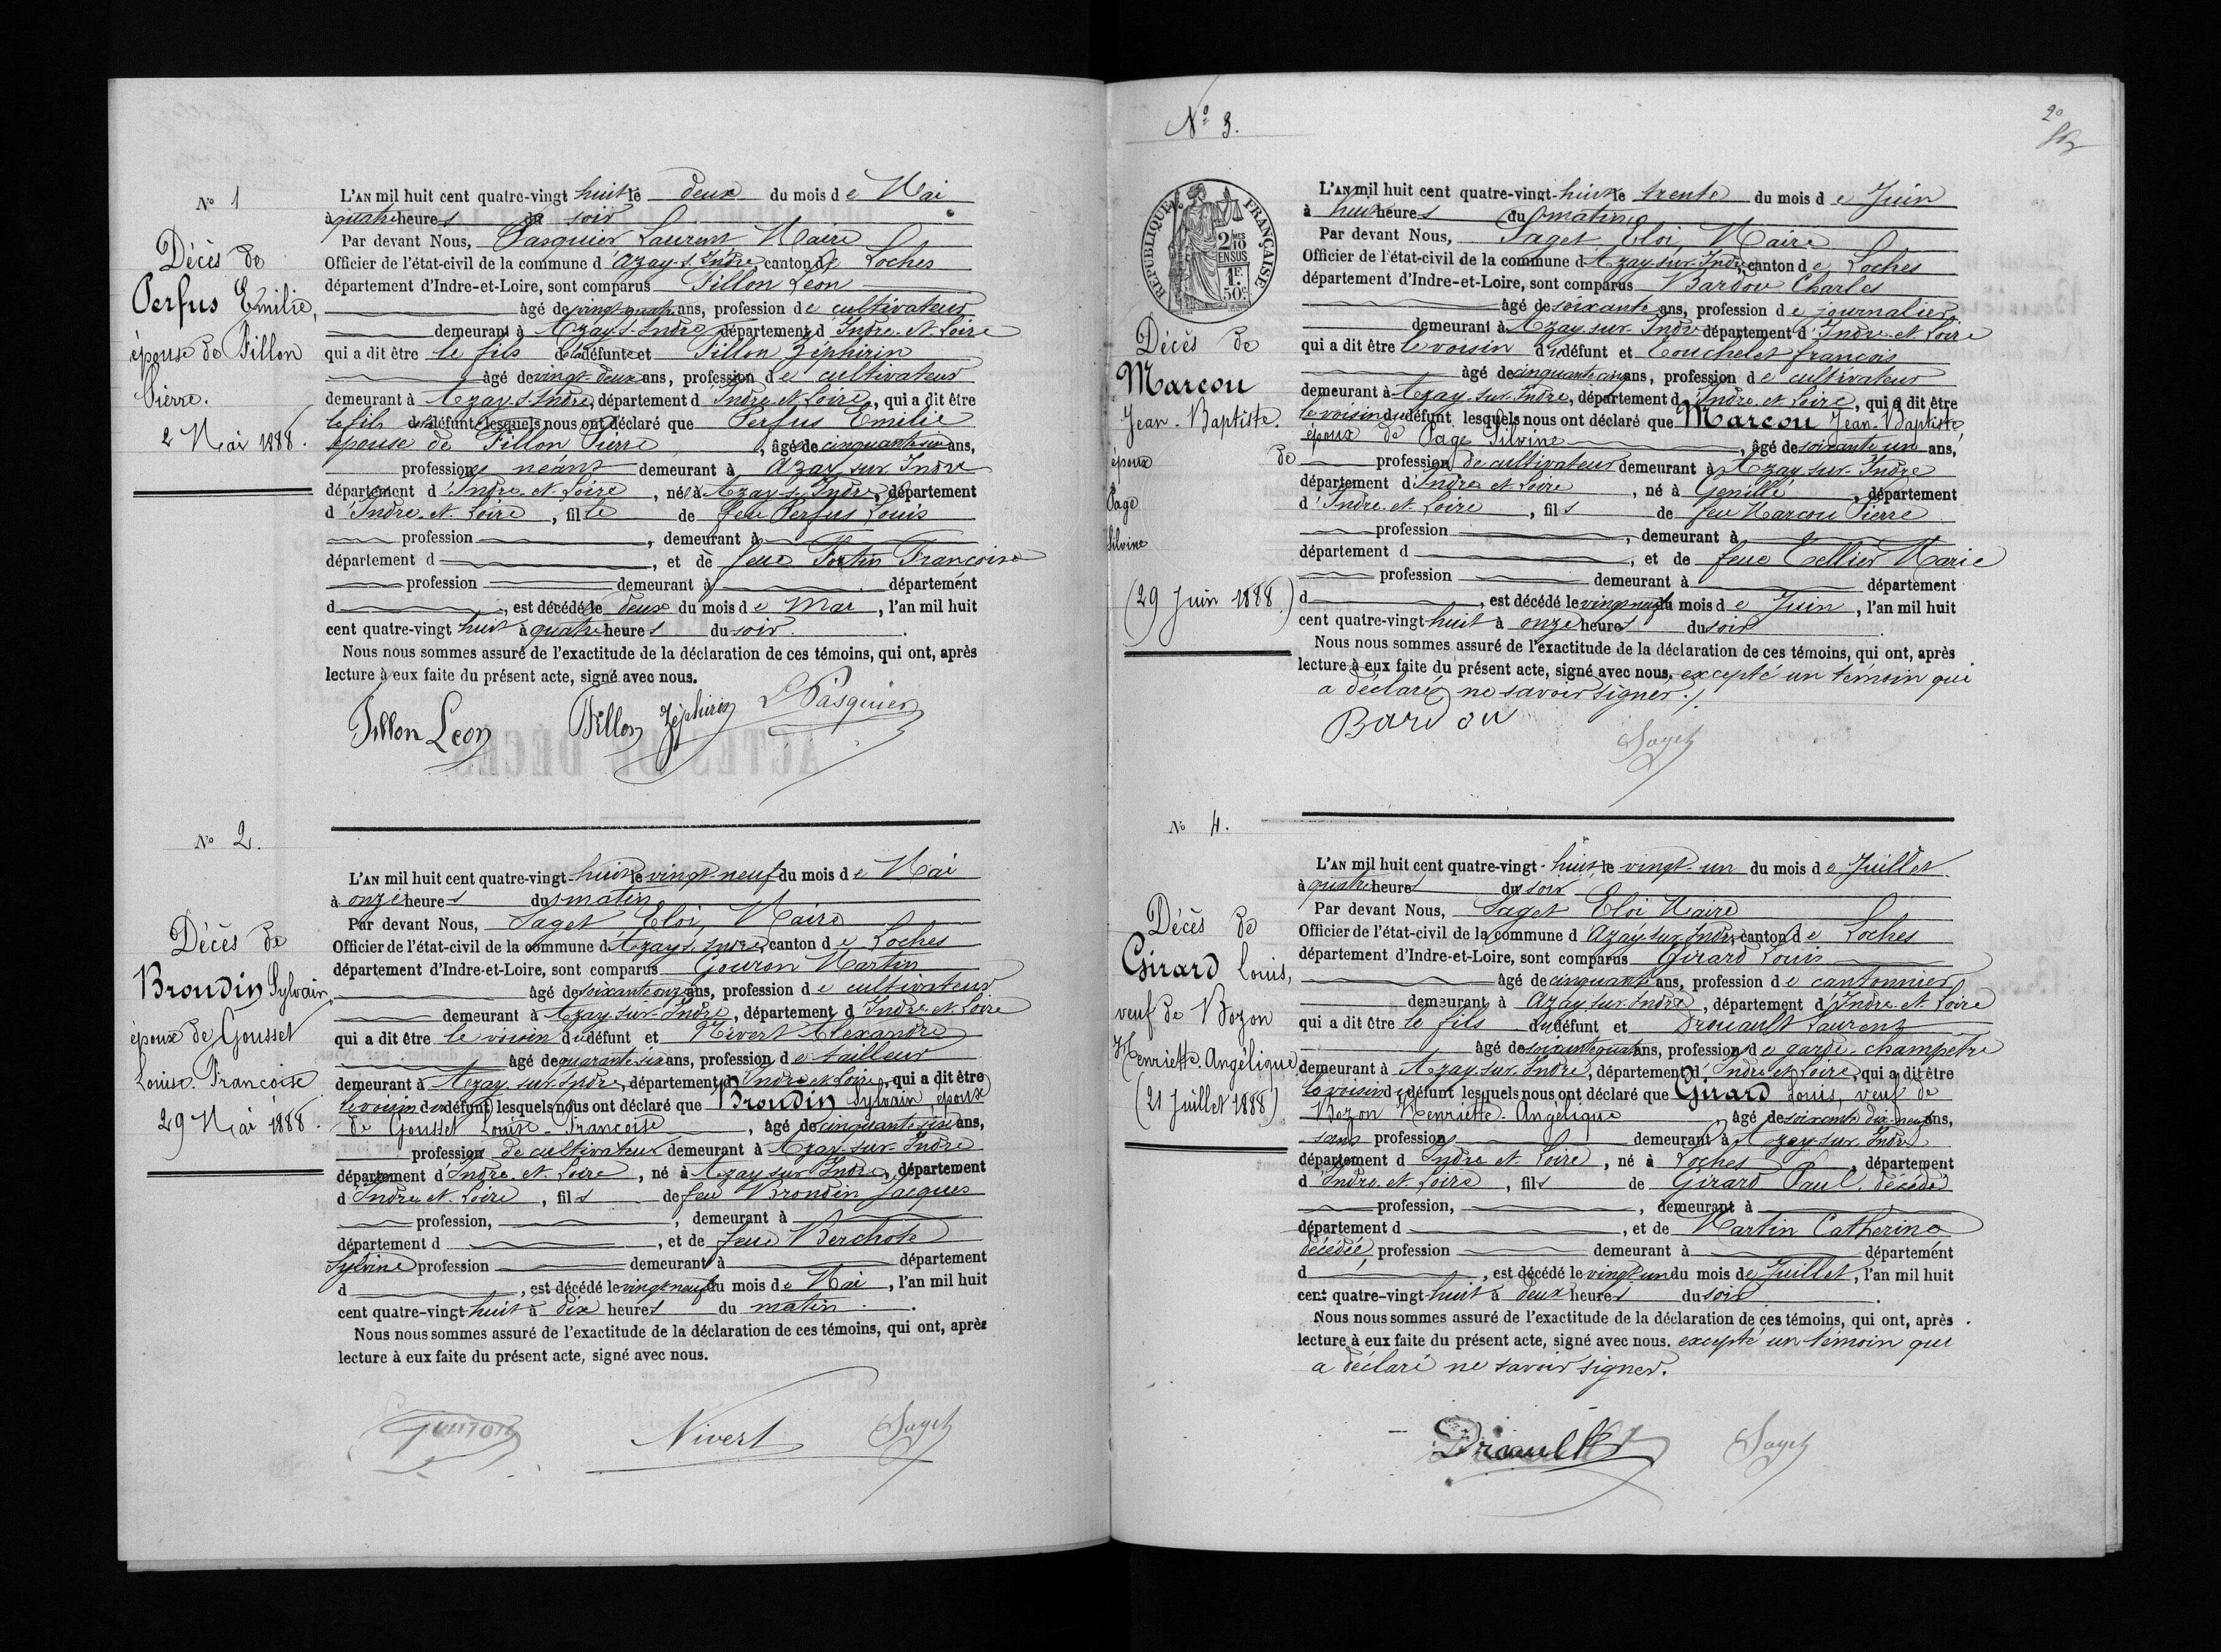 N° 1
Décès de
Perfus Emilie,
épouse de Fillon
Pierre.
2 Mai 1888.
L'AN mil huit cent quatre-vingt huit le deux du mois de Mai
à quatre heures du soir
Par devant Nous, Pasquier Laurent Maire
Officier de l'état-civil de la commune d'Azay-s-Indre, canton de Loches
département d'Indre-et-Loire, sont comparus Fillon Léon
âgé de vingt-quatre ans, profession de cultivateur
demeurant à Azay-s-Indre département d'Indre-et-Loire
qui a dit être le fils de la défunte et Fillon Zéphirin
âgé de vingt-deux ans, profession de cultivateur
demeurant à Azay-s-Indre, département d'Indre-et-Loire, qui a dit être
le fils de la défunte lesquels nous ont déclaré que Perfus Emilie
épouse de Fillon Pierre, âgé de cinquante ans,
profession néant demeurant à Azay sur Indre
département d'Indre-et-Loire, née à Azay-s-Indre, département
d'Indre-et-Loire, fille de feu Perfus Louis
profession, demeurant à
département d, et de feue Fortin Françoise
profession demeurant à département
d, est décédé le deux du mois de Mai, l'an mil huit
cent quatre-vingt huit à quatre heures du soir.
Nous nous sommes assuré de l'exactitude de la déclaration de ces témoins, qui ont, après
lecture à eux faite du présent acte, signé avec nous.
Fillon Léon Fillon Zéphirin L Pasquier
N° 2.
Décès de
Broudin Sylvain,
époux de Gousset
Louise-Françoise
29 Mai 1888.
L'AN mil huit cent quatre-vingt-huit le vingt-neuf du mois de Mai
à onze heures du matin
Par devant Nous, Saget Eloi, Maire
Officier de l'état-civil de la commune d'Azay s. Indre canton de Loches
département d'Indre-et-Loire, sont comparus Gouron Martin
âgé de soixante onze ans, profession de cultivateur
demeurant à Azay-sur-Indre, département d'Indre-et-Loire
qui a dit être le voisin du défunt et Nivert Alexandre
âgé de quarante-six ans, profession de tailleur
demeurant à Azay-sur-Indre, département d'Indre-et-Loire, qui a dit être
le voisin du défunt lesquels nous ont déclaré que Broudin Sylvain, époux
de Gousset Louise-Françoise, âgé de cinquante six ans,
profession de cultivateur demeurant à Azay-sur-Indre
département d'Indre-et-Loire, né à Azay-sur-Indre, département
d'Indre-et-Loire, fils de feu Broudin Jacques
profession, demeurant à
département d, et de feue Berchote
Sylvine profession demeurant à département
d, est décédé le vingt neuf du mois de Mai, l'an mil huit
cent quatre-vingt-huit à dix heures du matin.
Nous nous sommes assuré de l'exactitude de la déclaration de ces témoins, qui ont, après
lecture à eux faite du présent acte, signé avec nous.
Gouron Nivert Saget
2e
N° 3.
RÉPUBLIQUE FRANÇAISE
2/10 MES
EN SUS
1F.
50c
Décès de
Marcou
Jean-Baptiste.
époux de
Page
Silvine
(29 Juin 1888.)
L'AN mil huit cent quatre-vingt-huit le trente du mois de Juin
à huit heures du matin
Par devant Nous, Saget Eloi Maire
Officier de l'état-civil de la commune d'Azay-sur-Indre, canton de Loches
département d'Indre-et-Loire, sont comparus Bardou Charles
âgé de soixante ans, profession de journalier
demeurant à Azay-sur-Indre département d'Indre-et-Loire
qui a dit être le voisin du défunt et Couchelet François
âgé de cinquante cinq ans, profession de cultivateur
demeurant à Azay-sur-Indre, département d'Indre-et-Loire, qui a dit être
le voisin du défunt lesquels nous ont déclaré que Marcou Jean-Baptiste
époux de Page Silvine, âgé de soixante un ans,
profession de cultivateur demeurant à Azay-sur-Indre
département d'Indre-et-Loire, né à Genillé, département
d'Indre-et-Loire, fils de feu Marcou Pierre
profession, demeurant à
département d, et de feue Tellier Marie
profession demeurant à département
d, est décédé le vingt neuf du mois de Juin, l'an mil huit
cent quatre-vingt-huit à onze heures du soir.
Nous nous sommes assuré de l'exactitude de la déclaration de ces témoins, qui ont, après
lecture à eux faite du présent acte, signé avec nous, excepté un témoin qui
a déclaré ne savoir signer./.
Bardou
Saget
N° 4.
Décès de
Girard Louis,
veuf de Bozon
Henriette-Angélique.
(21 Juillet 1888)
L'AN mil huit cent quatre-vingt-huit le vingt-un du mois de Juillet
à quatre heures du soir
Par devant Nous, Saget Eloi Maire
Officier de l'état-civil de la commune d'Azay-sur-Indre, canton de Loches
département d'Indre-et-Loire, sont comparus Girard Louis
âgé de cinquante ans, profession de cantonnier
demeurant à Azay-sur-Indre, département d'Indre-et-Loire
qui a dit être le fils du défunt et Drouault Laurent
âgé de soixante quatre ans, profession de garde-champêtre
demeurant à Azay-sur-Indre, département d'Indre-et-Loire, qui a dit être
le voisin du défunt lesquels nous ont déclaré que Girard Louis, veuf de
Bozon Henriette-Angélique, âgé de soixante dix-neuf ans,
sans profession demeurant à Azay-sur-Indre
département d'Indre-et-Loire, né à Loches, département
d'Indre-et-Loire, fils de Girard Paul décédé
profession, demeurant à
département d, et de Martin Catherine
décédée, profession demeurant à département
d, est décédé le vingt un du mois de Juillet, l'an mil huit
cent quatre-vingt-huit à deux heures du soir.
Nous nous sommes assuré de l'exactitude de la déclaration de ces témoins, qui ont, après
lecture à eux faite du présent acte, signé avec nous. excepté un témoin qui
a déclaré ne savoir signer.
Drouault Saget